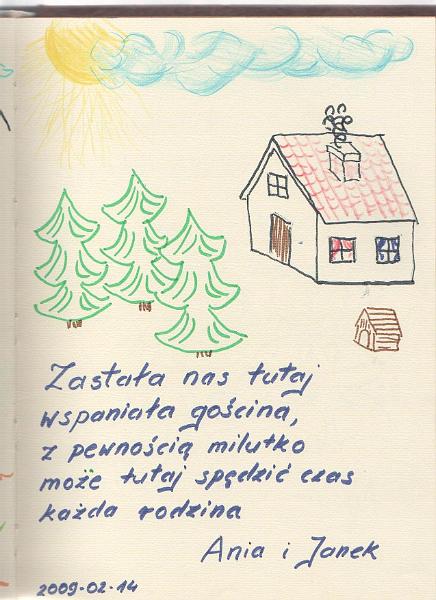 Zastała nas tutaj
wspaniała gościna,
z pewnością milutko
może tutaj spędzić czas
każda rodzina
Ania i Janek
2009-02-14